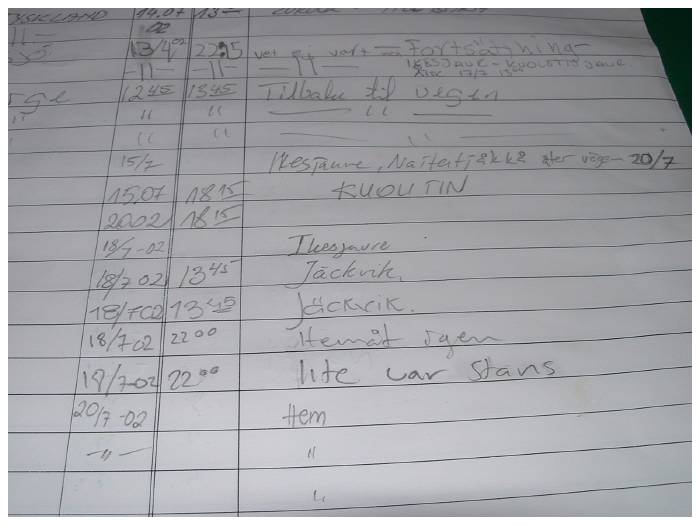 TYSKLAND 14.07 13
—11— 02
13/7 02 22:15 vet ej vart — Fortsättning
—11— —11— —11— IKESJAUR - KUOLUTISJAURE
17/7 13
rge 12 45 13 45 Tilbaka til vegen
" " " — " —
" " — " —
15/7 Ikesjaure, Naitatjåkkå åter väge- 20/7
15.07 18 15 KUOUTIN
2002 18 15
18/7-02 Ikesjaure
18/7 02 13 45 Jäckvik.
18/7 02 13 45 Jäckvik.
18/7 02 22 00 Hemåt igen
18/7-02 22 00 lite var stans
20/7-02 Hem
—"— "
"